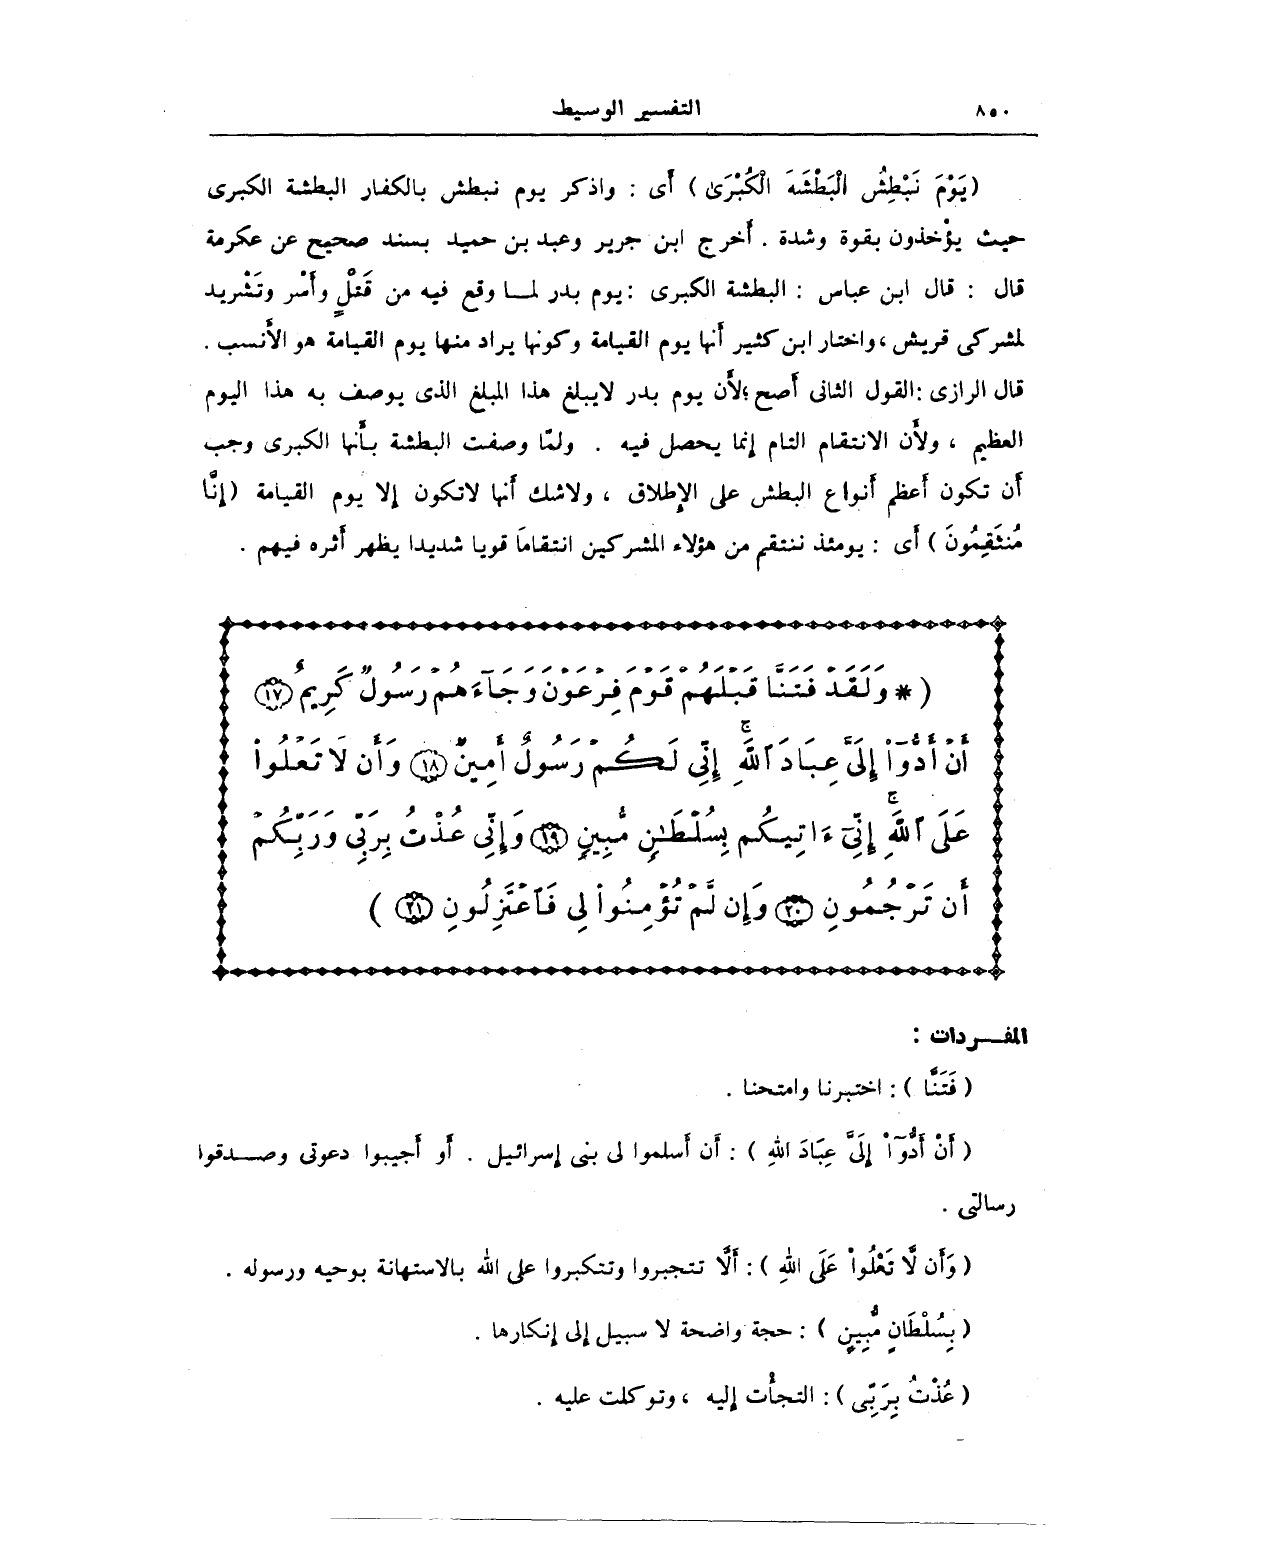 ٨٥٠
التفسير الوسيط
(يَوْمَ نَبْطِشُ الْبَطْشَةَ الْكُبْرَىٰ) أى : واذكر يوم نبطش بالكفار البطشة الكبرى
حيث يؤخذون بقوة وشدة . أخرج ابن جرير وعبد بن حميد بسند صحيح عن عكرمة
قال : قال ابن عباس : البطشة الكبرى : يوم بدر لمــا وقع فيه من قَتْلٍ وأَسْر وتَشْريد
لمشركى قريش ، واختار ابن كثير أنها يوم القيامة وكونها يراد منها يوم القيامة هو الأنسب .
قال الرازى : القول الثانى أصح ؛ لأن يوم بدر لايبلغ هذا المبلغ الذى يوصف به هذا اليوم
العظيم ، ولأن الانتقام التام إنما يحصل فيه . ولمّا وصفت البطشة بأنها الكبرى وجب
أن تكون أعظم أنواع البطش على الإطلاق ، ولاشك أنها لاتكون إلا يوم القيامة (إِنَّا
مُنتَقِمُونَ ) أى : يومئذ ننتقم من هؤلاء المشركين انتقامًا قويا شديدا يظهر أثره فيهم .
( * وَلَقَدْ فَتَنَّا قَبْلَهُمْ قَوْمَ فِرْعَوْنَ وَجَآءَهُمْ رَسُولٌ كَرِيمٌ ١٧
أَنْ أَدُّوٓاْ إِلَىَّ عِبَادَ ٱللَّهِ ۖ إِنِّى لَكُمْ رَسُولٌ أَمِينٌ ١٨ وَأَن لَّا تَعْلُواْ
عَلَى ٱللَّهِ ۖ إِنِّىٓ ءَاتِيكُم بِسُلْطَـٰنٍ مُّبِينٍ ١٩ وَإِنِّى عُذْتُ بِرَبِّى وَرَبِّكُمْ
أَن تَرْجُمُونِ ٢٠ وَإِن لَّمْ تُؤْمِنُواْ لِى فَٱعْتَزِلُونِ ٢١ )
المفــردات :
( فَتَنَّا ) : اختبرنا وامتحنا .
( أَنْ أَدُّوٓاْ إِلَىَّ عِبَادَ اللهِ ) : أن أسلموا لى بنى إسرائيل . أو أجيبوا دعوتى وصــدقوا
رسالتى .
( وَأَن لَّا تَعْلُواْ عَلَى اللهِ ) : ألَّا تتجبروا وتتكبروا على الله بالاستهانة بوحيه ورسوله .
( بِسُلْطَانٍ مُّبِينٍ ) : حجة واضحة لا سبيل إلى إنكارها .
( عُذْتُ بِرَبِّى ) : التجأت إليه ، وتوكلت عليه .